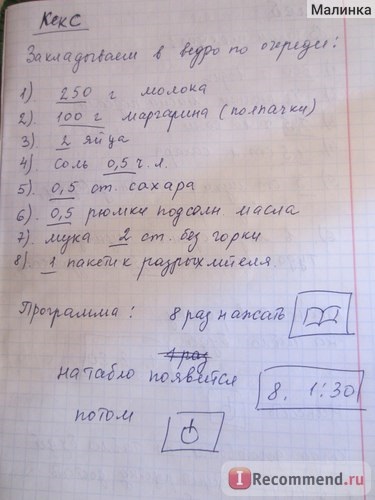 Малинка
Кекс
Закладываем в ведро по очереди:
1). 250 г молока
2). 100 г маргарина (полпачки)
3). 2 яйца
4). соль 0,5 ч.л.
5). 0,5 ст. сахара
6). 0,5 рюмки подсолн. масла
7). мука 2 ст. без горки
8). 1 пакетик разрыхлителя.
Программа: 8 раз нажать
1 раз
на табло появится 8. 1:30
потом
iRecommend.ru